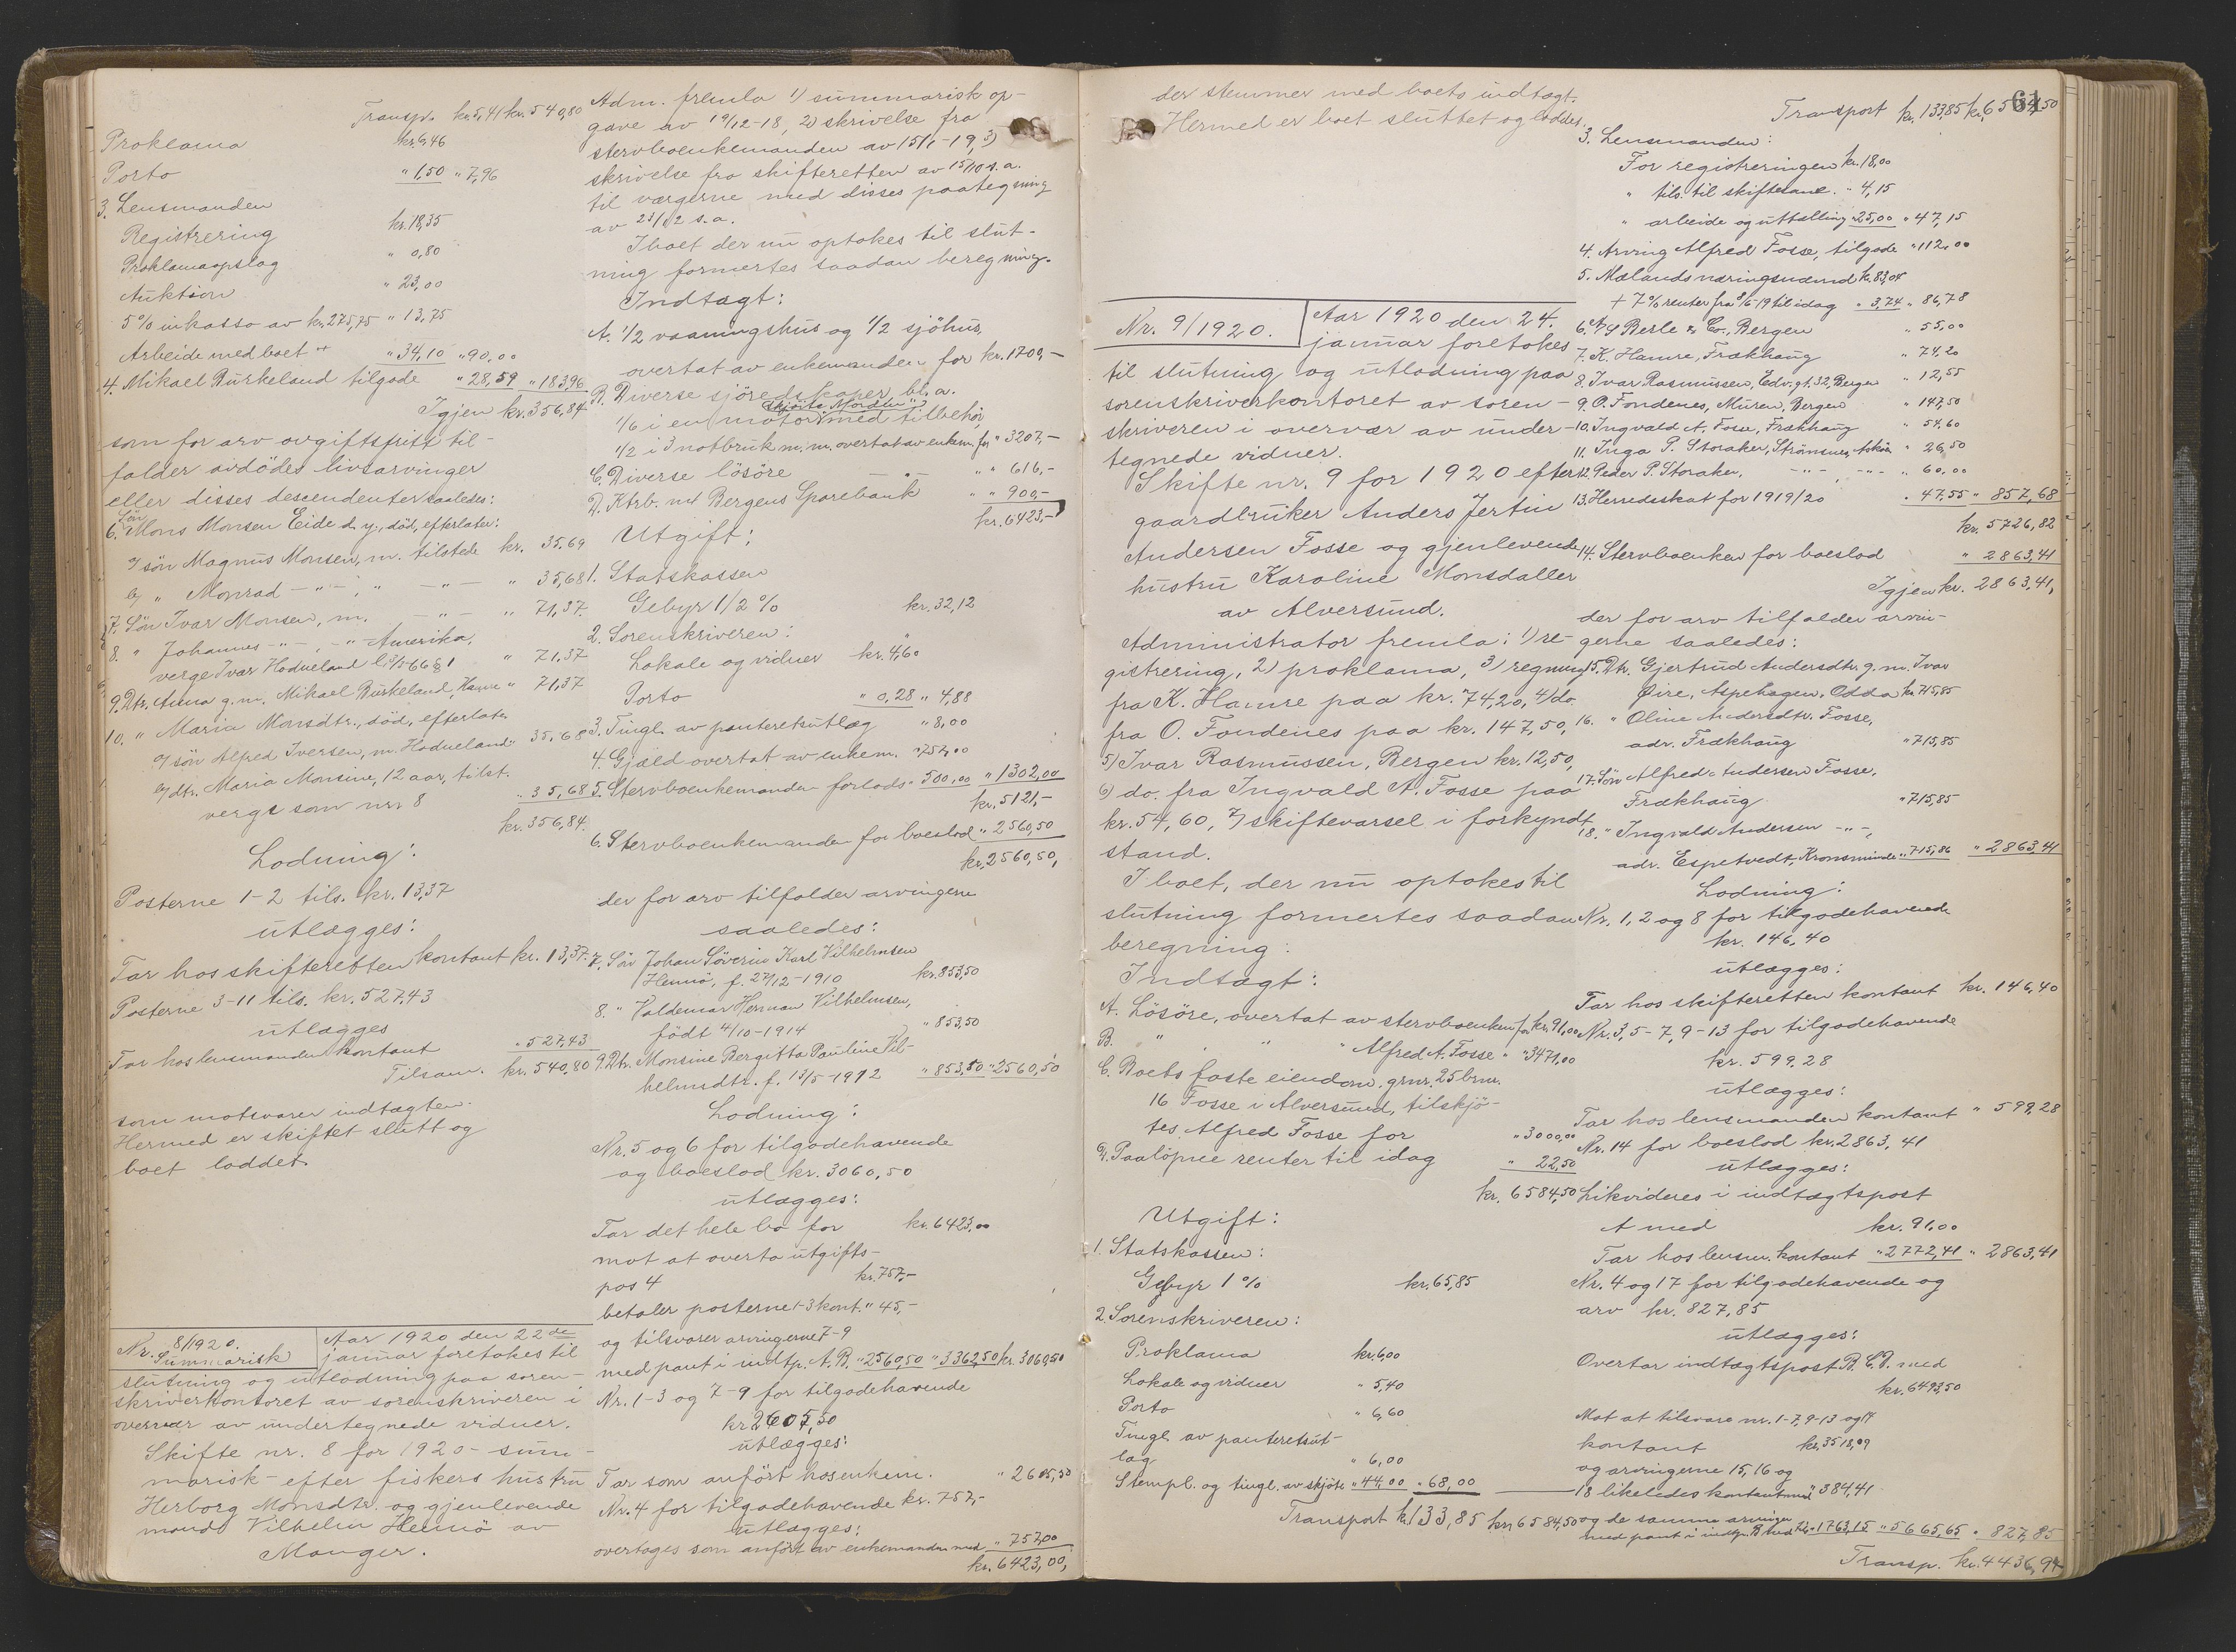 Transp. kr. 5,41 kr. 540,80
Proklama kr. 6,46
Porto " 1,50 " 7,96
3. Lensmanden
Registrering kr. 18,35
Proklamaopslag " 0,80
Auktion " 23,00
5% inkasso av kr. 275,75 " 13,75
Arbeide med boet " 34,10 " 90,00
4. Mikael Burkeland tilgode " 28,59 " 183,96
Igjen kr. 356,84
som for arv avgiftsfrit til-
falder avdödes livsarvinger
eller disses descendenter saaledes:
Sön
6. Mons Monsen Eide d.y., död, efterlater:
a/ sön Magnus Monsen, m. tilstede kr. 35,69
b/ " Monrad - " - , " - " - " 35,68
7. Sön Ivar Monsen, m. - " - " 71,37
8. " Johannes - " - , - " - Amerika,
verge Ivar Hodneland l. 8/5 66 § 1 " 71,37
9. Dtr. Anna g.m. Mikael Burkeland, Hamre " 71,37
10. " Maria Monsdtr., död, efterlater
a/ sön Alfred Iversen, m. Hodneland " 35,68
b/ dtr. Maria Monsine, 12 aar, tilst.
verge som nr. 8 " 35,68
kr. 356,84.
Lodning:
Posterne 1-2 tils. kr. 13,37
utlægges:
Tar hos skifteretten kontant kr. 13,37.
Posterne 3-11 tils. kr. 527,43
utlægges
Tar hos lensmanden kontant " 527,43
Tilsam. kr. 540,80
som motsvarer indtægten.
Hermed er skiftet slutt og
boet loddet.
Nr. 8/1920. Summarisk
Aar 1920 den 22de
januar foretokes til
slutning og utlodning paa soren-
skriverkontoret av sorenskriveren i
overvær av undertegnede vidner.
Skifte nr. 8 for 1920 - sum-
marisk - efter fiskers hustru
Herborg Monsdtr. og gjenlevende
mand Vilhelm Hennö av
Manger.
Adm. fremla 1) summarisk op-
gave av 19/12-18, 2) skrivelse fra
stervboenkemanden av 15/1-19, 3)
skrivelse fra skifteretten av 15/10 s.a.
til værgerne med disses paategning
av 23/12 s.a.
I boet der nu optokes til slut-
ning formertes saadan beregning.
Indtægt:
A. 1/2 vaaningshus og 1/2 sjöhus,
overtat av enkemanden for kr. 1700,-
B. Diverse sjöredskaper bl. a.
1/6 i en motor med tilbehör,
1/2 i 3 notbruk m.m. overtat av enkem. for " 3207,-
C. Diverse lösöre - " - " " 616,-
D. Ktrb. m/ Bergens Sparebank " " 900,-
kr. 6423,-
Utgift:
1. Statskassen
Gebyr 1/2 % kr. 32,12
2. Sorenskriveren:
Lokale og vidner kr. 4,60
Porto " 0,28 " 4,88
3. Tingl. av panteretsutlæg " 8,00
4. Gjæld overtat av enkem. " 757,00
5. Stervboenkemanden forlods " 500,00 " 1302,00
kr. 5121,-
6. Stervboenkemanden for boeslod " 2560,50
kr. 2560,50,
der for arv tilfalder arvingerne
saaledes:
7. Sön Johan Söverin Karl Vilhelmsen
Hennö, f. 27/12-1910 kr. 853,50
8. " Valdemar Herman Vilhelmsen,
födt 4/10-1914 " 853,50
9. Dtr. Monsine Bergitta Pauline Vil-
helmsdtr. f. 13/5-1912 " 853,50 " 2560,50
Lodning:
Nr. 5 og 6 for tilgodehavende
og boeslod kr. 3060,50
utlægges:
Tar det hele bo for kr. 6423,00
mot at overta utgifts-
pos 4 kr. 757,-
betaler posterne 1-3 kont. " 45,-
og tilsvarer arvingerne 7-9
med pant i indtp. A. B. " 2560,50 " 3362,50 kr. 3060,50
Nr. 1-3 og 7-9 for tilgodehavende
kr. 2605,50
utlægges:
Tar som anfört hos enkem. " 2605,50
Nr. 4 for tilgodehavende kr. 757,-
utlægges:
overtages som anfört av enkemanden med " 757,00
kr. 6423,00,
der stemmer med boets indtægt.
Hermed er boet sluttet og loddet.
Nr. 9/1920.
Aar 1920 den 24.
januar foretokes
til slutning og utlodning paa
sorenskriverkontoret av soren-
skriveren i overvær av under-
tegnede vidner.
Skifte nr. 9 for 1920 efter
gaardbruker Anders Jertin
Andersen Fosse og gjenlevende
hustru Karoline Monsdatter
av Alversund.
Administrator fremla: 1) re-
gistrering, 2) proklama, 3) regning
fra K. Hamre paa kr. 74,20, 4) do.
fra O. Fondenes paa kr. 147,50,
5) Ivar Rasmussen, Bergen kr. 12,50,
6) do. fra Ingvald A. Fosse paa
kr. 54,60, 7) skiftevarsel i forkyndt
stand.
I boet, der nu optokes til
slutning formertes saadan
beregning:
Indtægt:
A. Lösöre, overtat av stervboenken for kr. 91,00
B. " " " Alfred A. Fosse " " 3471,00
C. Boets faste eiendom. grnr. 25 brnr.
16 Fosse i Alversund, tilskjö-
tes Alfred Fosse for " 3000,00
D. Paalöpne renter til idag " 22,50
kr. 6584,50
Utgift:
1. Statskassen:
Gebyr 1 % kr. 65,85
2. Sorenskriveren:
Proklama kr. 6,00
Lokale og vidner " 5,40
Porto " 6,60
Tingl. av panteretsut-
læg " 6,00
Stempl. og tingl. av skjöte " 44,00 " 68,00
Transport kr. 133,85 kr. 6584,50
61
Transport kr. 133,85 kr. 6584,50
3. Lensmanden:
For registreringen kr. 18,00
" tils. til skiftetavl. " 4,15
" arbeide og uttælling " 25,00 " 47,15
4. Arving Alfred Fosse, tilgode " 112,00
5. Mælands næringsnævnd kr. 83,04
+ 7% renter fra 8/6-19 til idag " 3,74 " 86,78
6. A/S Berle & Co., Bergen " 55,00
7. K. Hamre, Frækhaug " 74,20
8. Ivar Rasmussen, Edv. gt. 32, Bergen " 12,55
9. O. Fondenes, Muren, Bergen " 147,50
10. Ingvald A. Fosse, Frækhaug " 54,60
11. Inga P. Storaker, Strömsnes, Askön " 26,50
12. Peder P. Storaker, - " - , - " - " 60,00
13. Herredsskat for 1919/20 " 47,55 " 857,68
kr. 5726,82
14. Stervboenken for boeslod " 2863,41
Igjen kr. 2863,41,
der for arv tilfalder arvin-
gerne saaledes:
15. Dtr. Gjertrud Andersdtr. g.m. Ivar
Öire, Aspehagen, Odda kr. 715,85
16. " Oline Andersdtr. Fosse,
adr. Frækhaug " 715,85
17. Sön Alfred Andersen Fosse,
Frækhaug " 715,85
18. " Ingvald Andersen - " -,
adr. Espetvedt, Kronsminde " 715,86 " 2863,41
Lodning:
Nr. 1, 2 og 8 for tilgodehavende
kr. 146,40
utlægges:
Tar hos skifteretten kontant kr. 146,40
Nr. 3, 5-7, 9-13 for tilgodehavende
kr. 599,28
utlægges:
Tar hos lensmanden kontant " 599,28
Nr. 14 for boeslod kr. 2863,41
utlægges:
Likvideres i indtægtspost
A med kr. 91,00
Tar hos lensm. kontant " 2772,41 " 2863,41
Nr. 4 og 17 for tilgodehavende og
arv kr. 827,85
utlægges:
Overtar indtægtspost B. C. D. med
kr. 6493,50
Mot at tilsvare nr. 1-7, 9-13 og 14
kontant kr. 3518,09
og arvingerne 15, 16 og
18 likeledes kontant med " 384,41
og de samme arvinger
med pant i indtp. B med " 1763,15 " 5665,65 " 827,85
Transp. kr. 4436,94